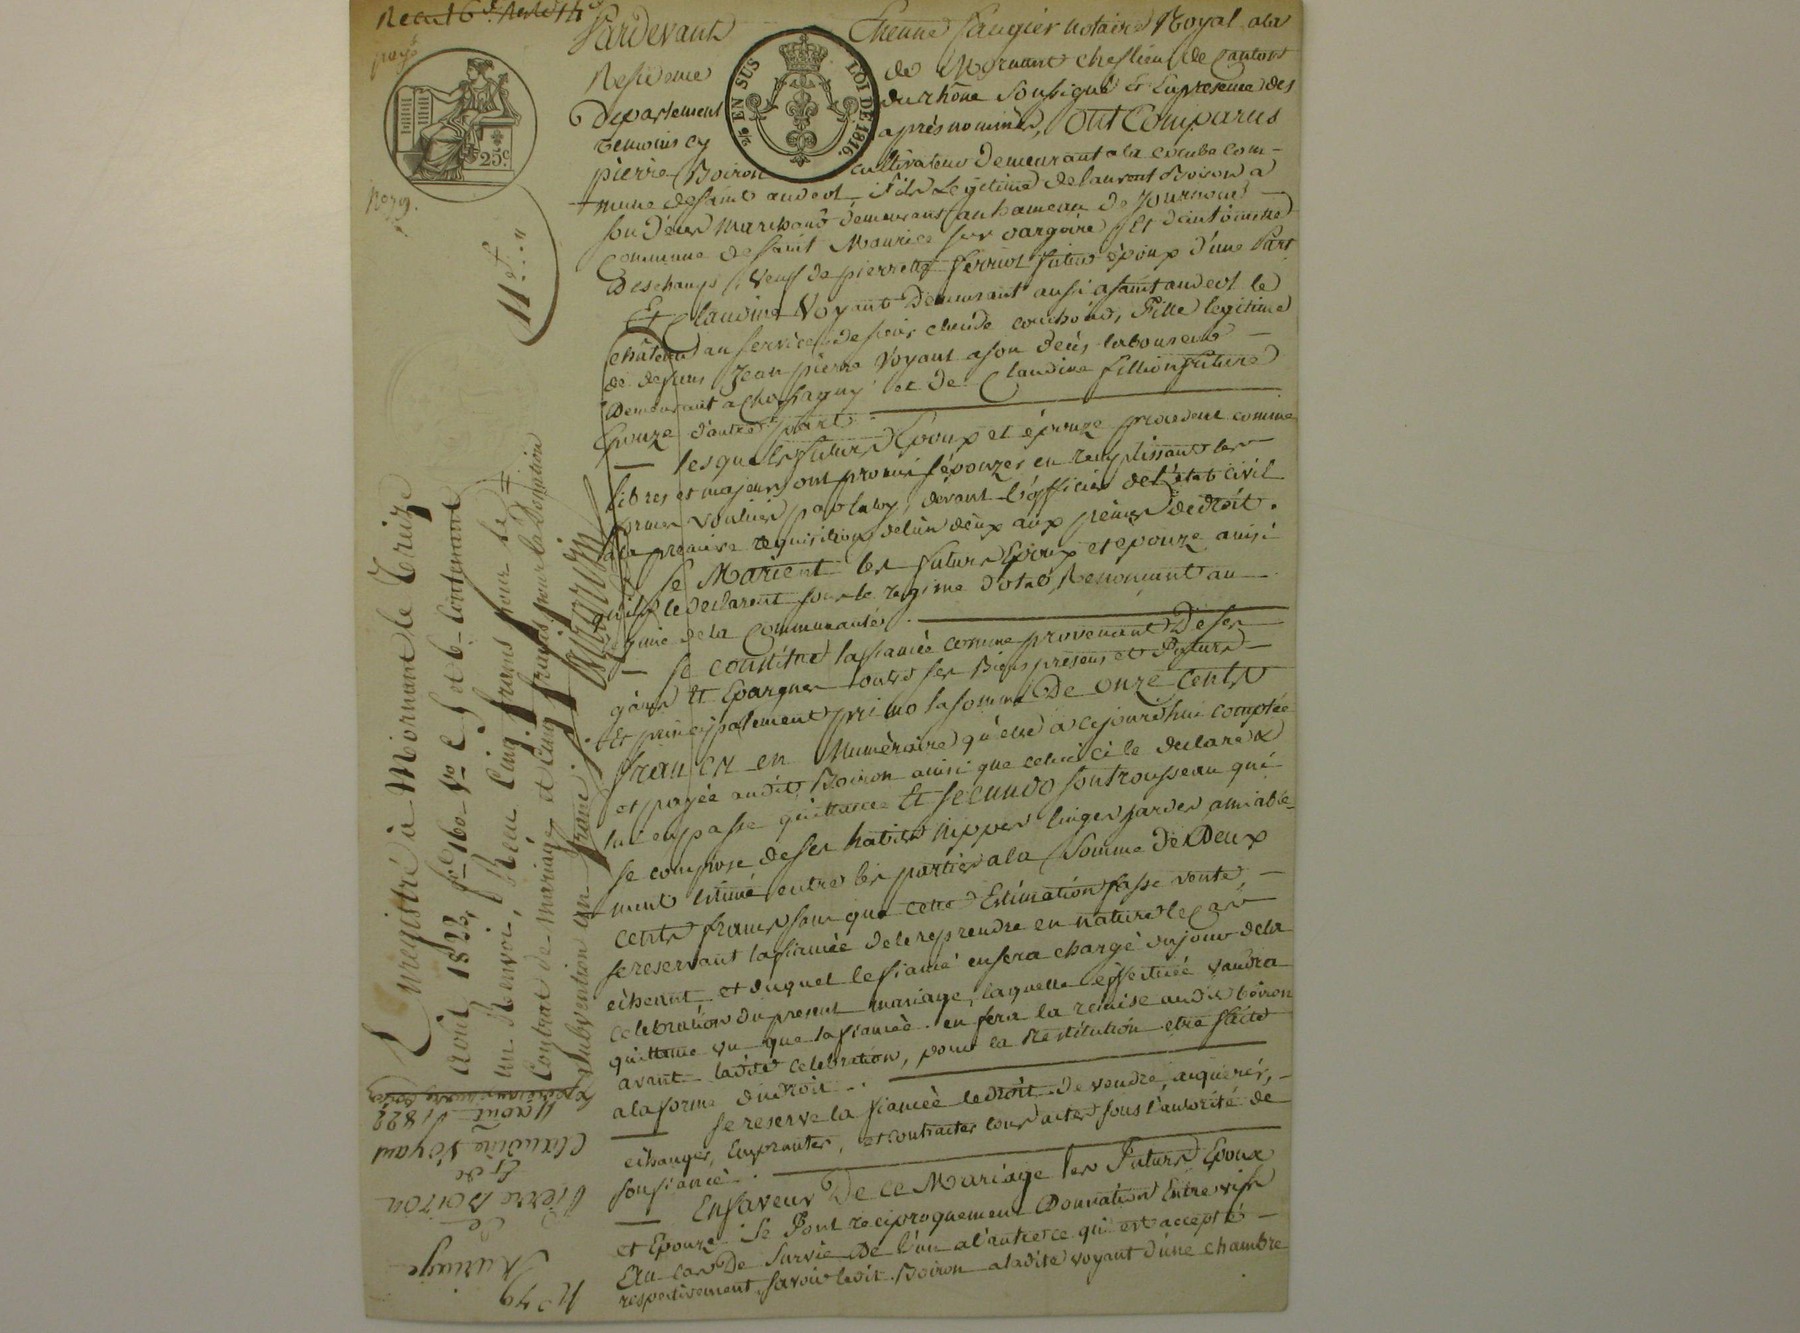 Pardevant Etienne Faugier notaire Royal ala
Residence de Mornant cheflieu de Canton
Departement du rhône soussigné Et Enpresence des
temoins cy après nommés, Ont Comparus
pièrre Boiron cultivateur demeurant ala combe com-
mune de saint andeol Fils Legitime de laurent Boiron a
son déces marchand demeurant au hameau de Journoud
Commune de saint Maurice sur dargoire Et d'antoinette
Deschamps, veuf de pierrette Ferriol futur époux d'une Part
Et Claudine Voyant Demeurant aussi a saint andeol le
château au service de sieur claude couchoud, Fille legitime
de defunt Jean pierre Voyant a son décés laboureur
Demeurant a Chassagny et de Claudine fillion future
Epouze d'autre part
lesquels futurs Epoux et épouze procedent comme
libres et majeurs ont promis s'épouzer en remplissant les
formes voulues par la loy, devant l'officier de l'état civil
ala premiere requisition de l'un deux aux peines de droit.
Se Marient les futurs Epoux et epouze ainsi
qu'ils le declarent sous le regime dotal, Renonçant au
regime de la Communauté
Se constitue la fiancée comme provenant De ses
gains Et Epargnes touts ses Biens présens et Futurs
Et principalement primo la somme De onze cents
francs en Numèraire qu'elle a cejourd'hui comptée
et payée audit Boiron ainsi que celui ci le declare &
lui en passe quittance Et secundo son trousseau qui
se compose de ses habits nippes linges jardes amiable-
ment estimé entre les parties ala somme de Deux
cents francs sans que cette Estimation fasse vente
se reservant la fiancée de le reprendre en nature le cas
écheant et duquel le fiancé en sera chargé du jour de la
celebration du present mariage, laquelle effectuée vaudra
quittance vu que la fiancée en fera la remise audit boiron
avant ladite celebration, pour la Restitution etre faite
ala forme du droit
Se reserve la fiancée le droit de vendre, aquerir,
echanger, Emprunter, et contracter tous actes sous l'autorité de
son fiancé.
En faveur De ce Mariage les Futurs Epoux
et Epouze se Font reciproquement Donnation Entrevifs
Eau cas De survie De l'un a l'autre ce qui est accepté
respectivement, savoir ledit Boiron aladite voyant d'une chambre
2/5 EN SUS
LOI DE 1816.
25c
No 79.
11 f.
Enregistré à Mornant le Treize
août 1822, fo 160 Vo C 5 et 6 contenant
un Renvoi, Reçu Cinq francs pour le
Contrat de mariage et Cinq francs pour la Donation
Subvention un franc.
No 79
Mariage
De
Pierre Boiron
Et de
Claudine Voyant
11 août 1822